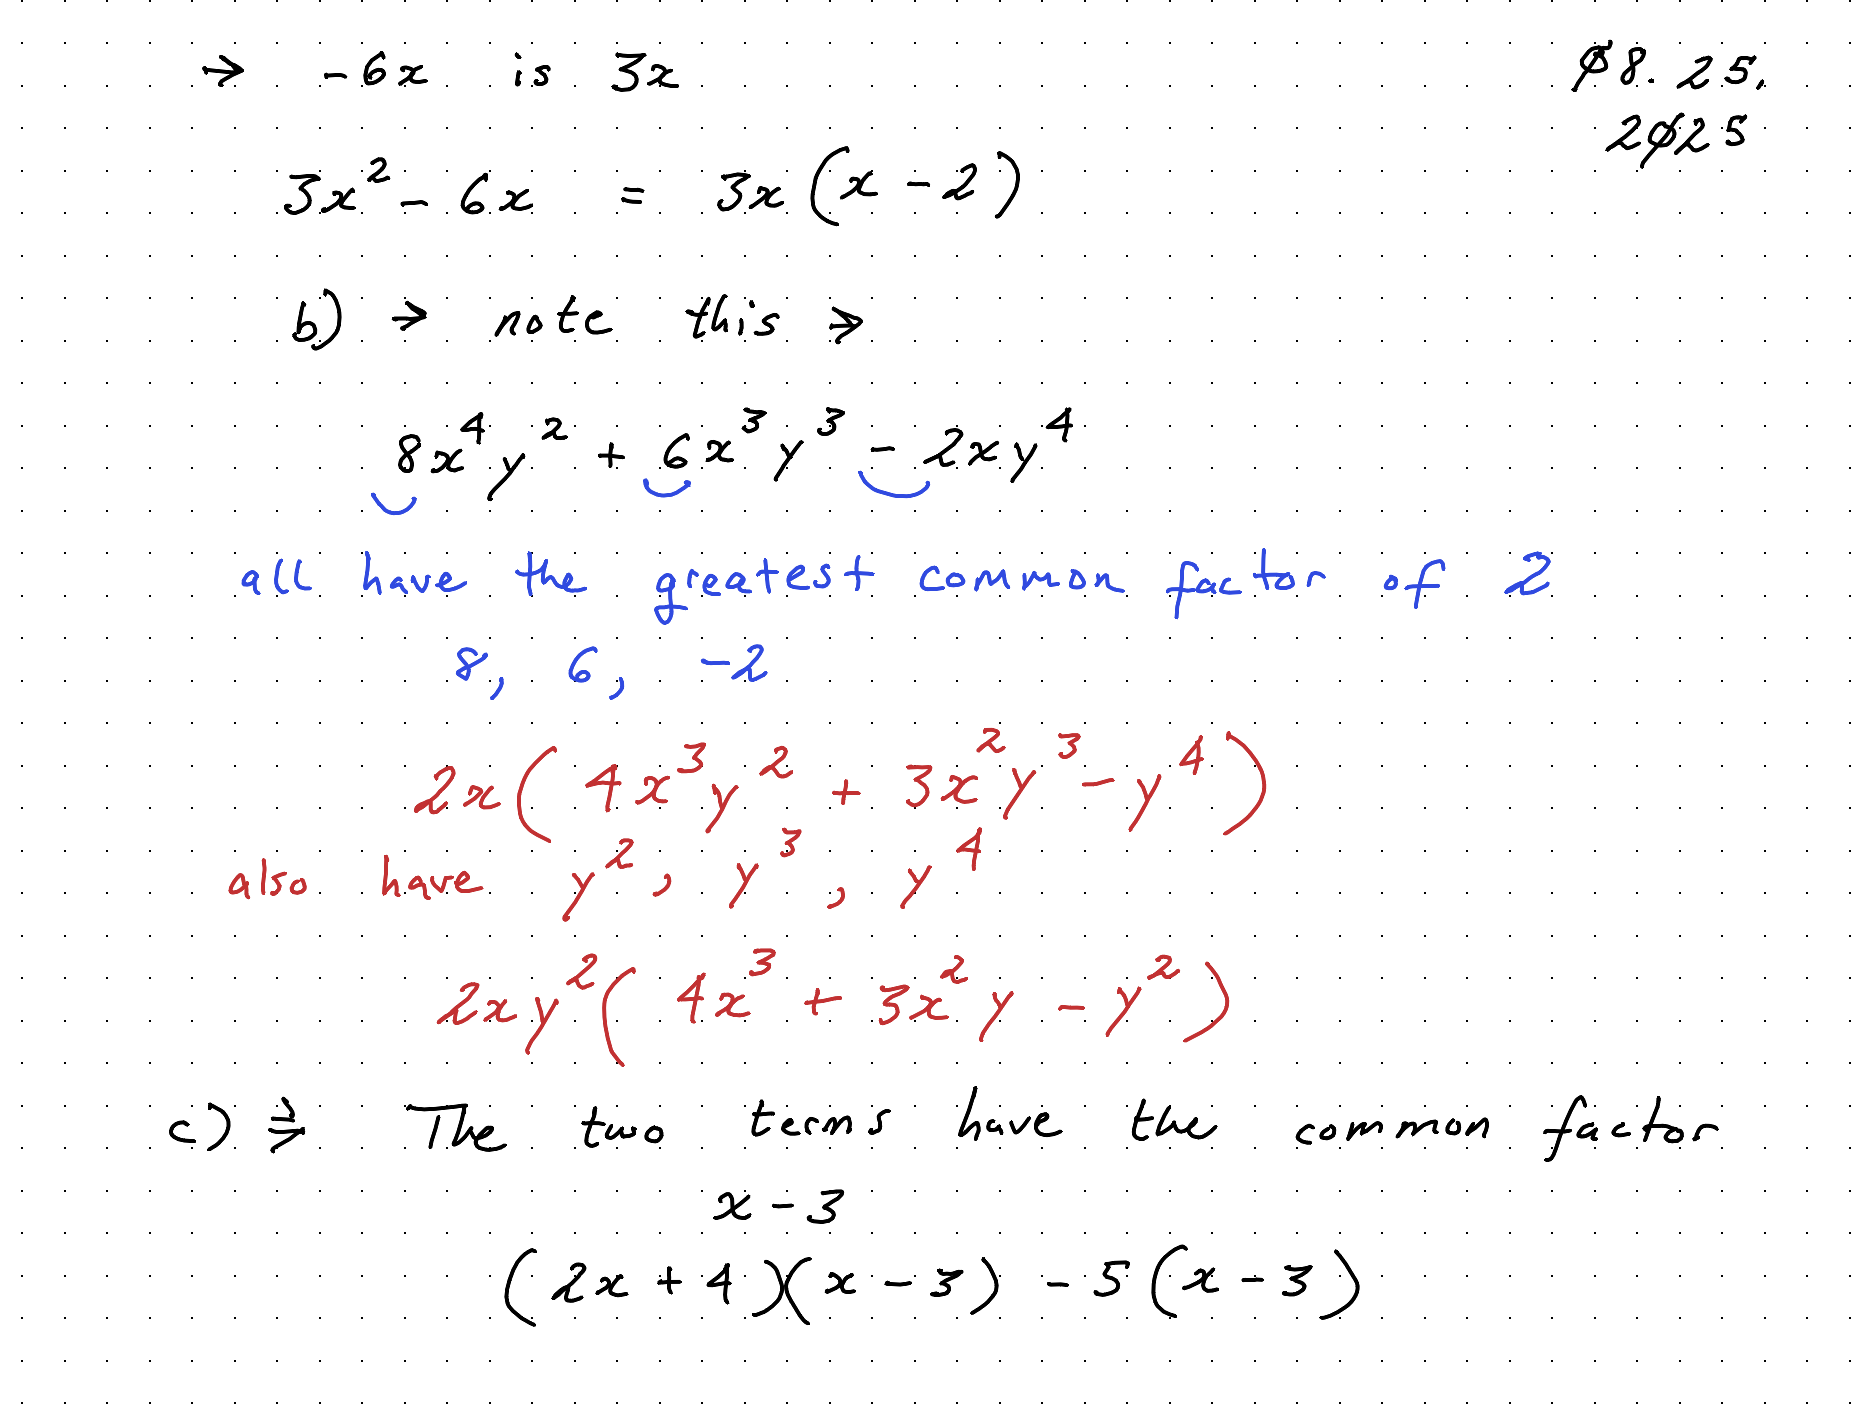 → -6x is 3x
ø8.25.
2ø25
3x² - 6x = 3x(x - 2)
b) → note this →
8x⁴y² + 6x³y³ - 2xy⁴
all have the greatest common factor of 2
8, 6, -2
2x(4x³y² + 3x²y³ - y⁴)
also have y², y³, y⁴
2xy²(4x³ + 3x²y - y²)
c) ⇒ The two terms have the common factor
x - 3
(2x + 4)(x - 3) - 5(x - 3)